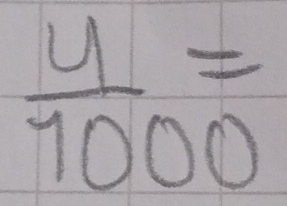 4/1000 =